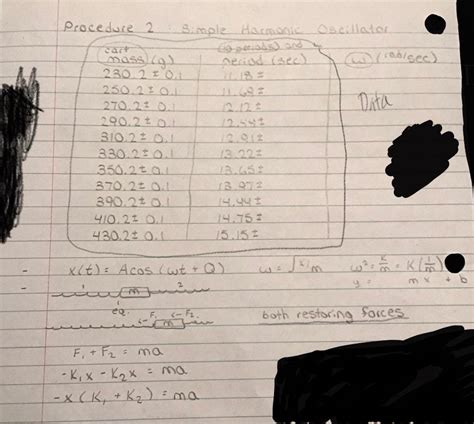 Procedure 2 : Simple Harmonic Oscillator
cart (10 periods) and
mass (g) period (sec) (ω) (rad/sec)
230.2 ± 0.1 11.18 ±
250.2 ± 0.1 11.69 ±
270.2 ± 0.1 12.12 ±
Data
290.2 ± 0.1 12.54 ±
310.2 ± 0.1 12.91 ±
330.2 ± 0.1 13.22 ±
350.2 ± 0.1 13.65 ±
370.2 ± 0.1 13.97 ±
390.2 ± 0.1 14.44 ±
410.2 ± 0.1 14.75 ±
430.2 ± 0.1 15.15 ±
- x(t) = Acos (ωt + Q) ω = √k/m ω² = K/m = K(1/m)
y = m x + b
- 1 m 2
eq. F₁ ← F₂
m both restoring forces
F₁ + F₂ = ma
-K₁x - K₂x = ma
-x (K₁ + K₂) = ma